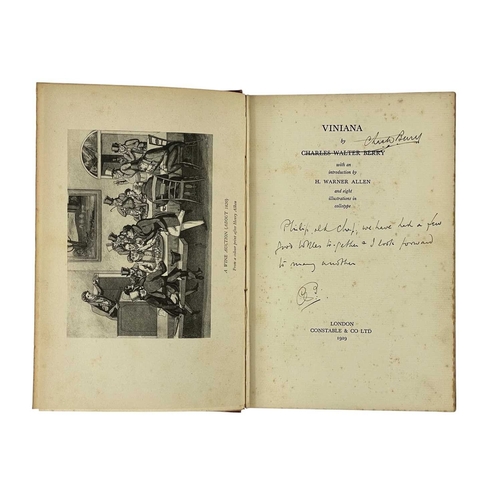 A WINE AUCTION LONDON 1929
From a colour print after Henry Alken
VINIANA
by
CHARLES WALTER BERRY
Charles Berry
with an
introduction by
H. WARNER ALLEN
and eight
illustrations in
collotype
Philip, old Chap, we have had a few
good bottles together & I look forward
to many another
LONDON
CONSTABLE & CO LTD
1929